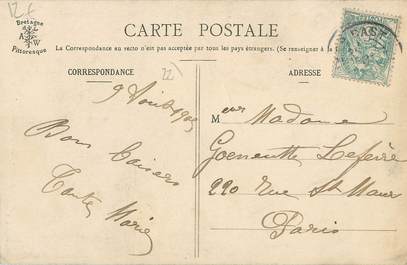 12 €
Bretagne
A W
Pittoresque
CARTE POSTALE
La Correspondance au recto n'est pas acceptée par tous les pays étrangers. (Se renseigner à la
CORRESPONDANCE
22
ADRESSE
BAST
9 Août
Bons Baisers
Tante Marie
M Madame
Goenentte Lefèvre
220 Rue St Maur
Paris